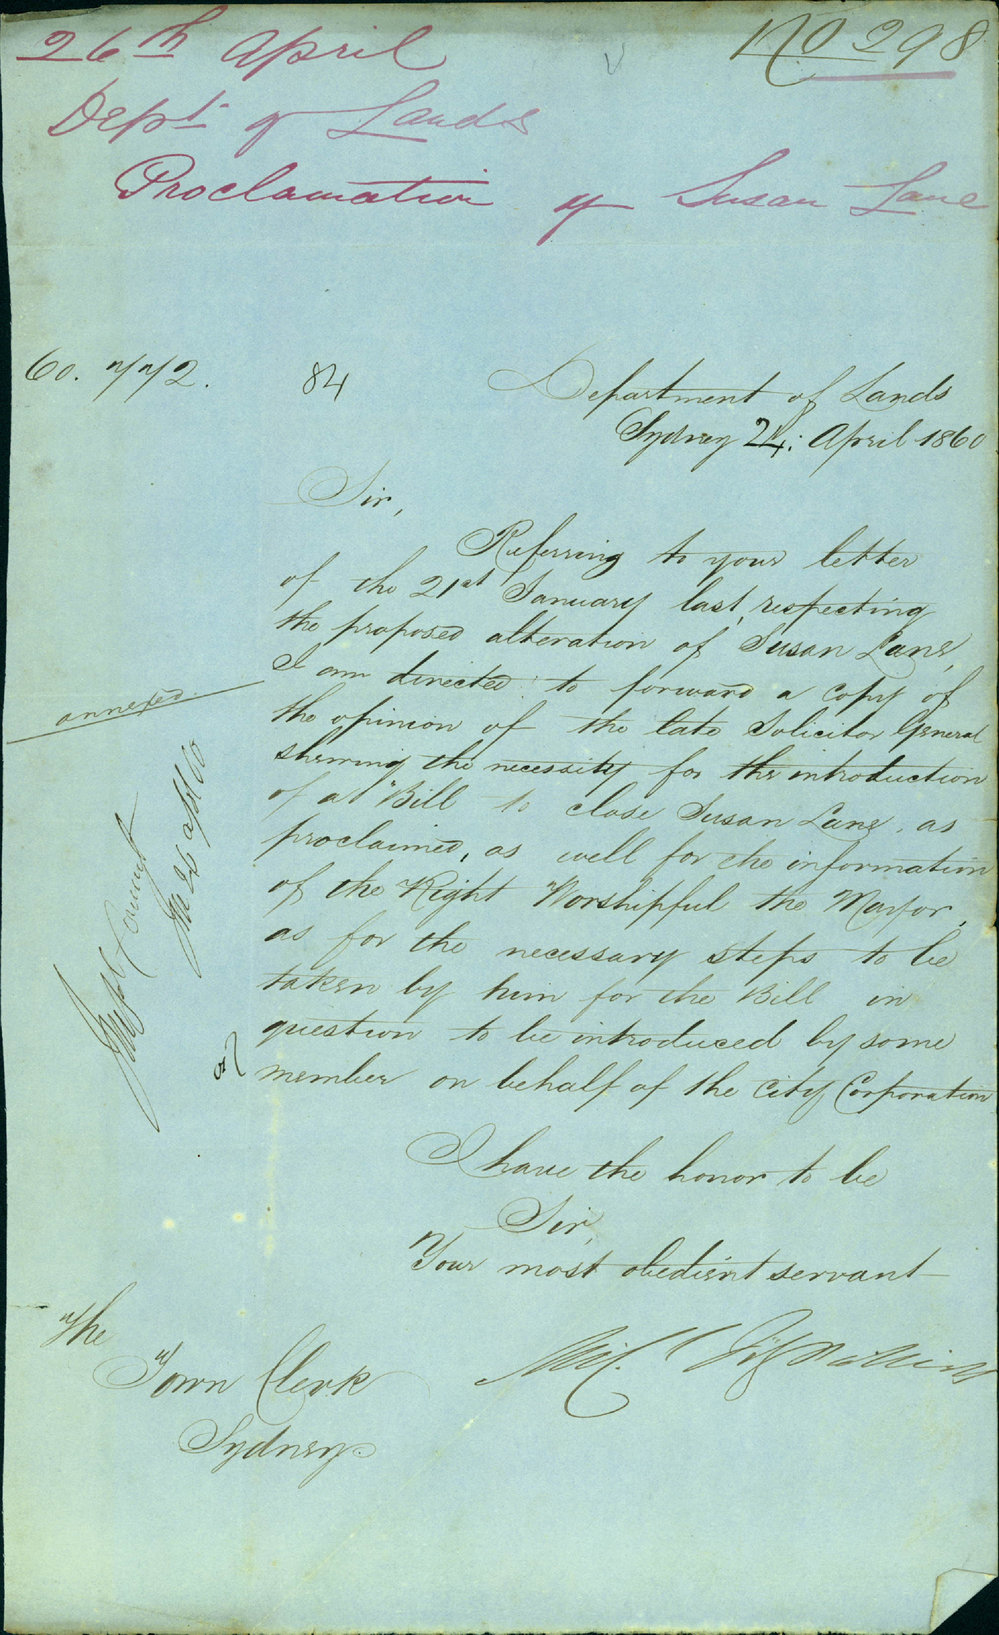 26th April
No 298
Dept of Lands
Proclamation of Susan Lane
60. 772.
84
Department of Lands
Sydney 24: April 1860
Sir,
Referring to your letter
of the 21st January last, respecting
the proposed alteration of Susan Lane,
I am directed to forward a copy of
the opinion of the late Solicitor General
shewing the necessity for the introduction
of a Bill to close Susan Lane, as
proclaimed, as well for the information
of the Right Worshipful the Mayor,
as for the necessary steps to be
taken by him for the Bill in
question to be introduced by some
member on behalf of the City Corporation
annexed
I have the honor to be
Sir,
Your most obedient servant
The
Town Clerk
Sydney